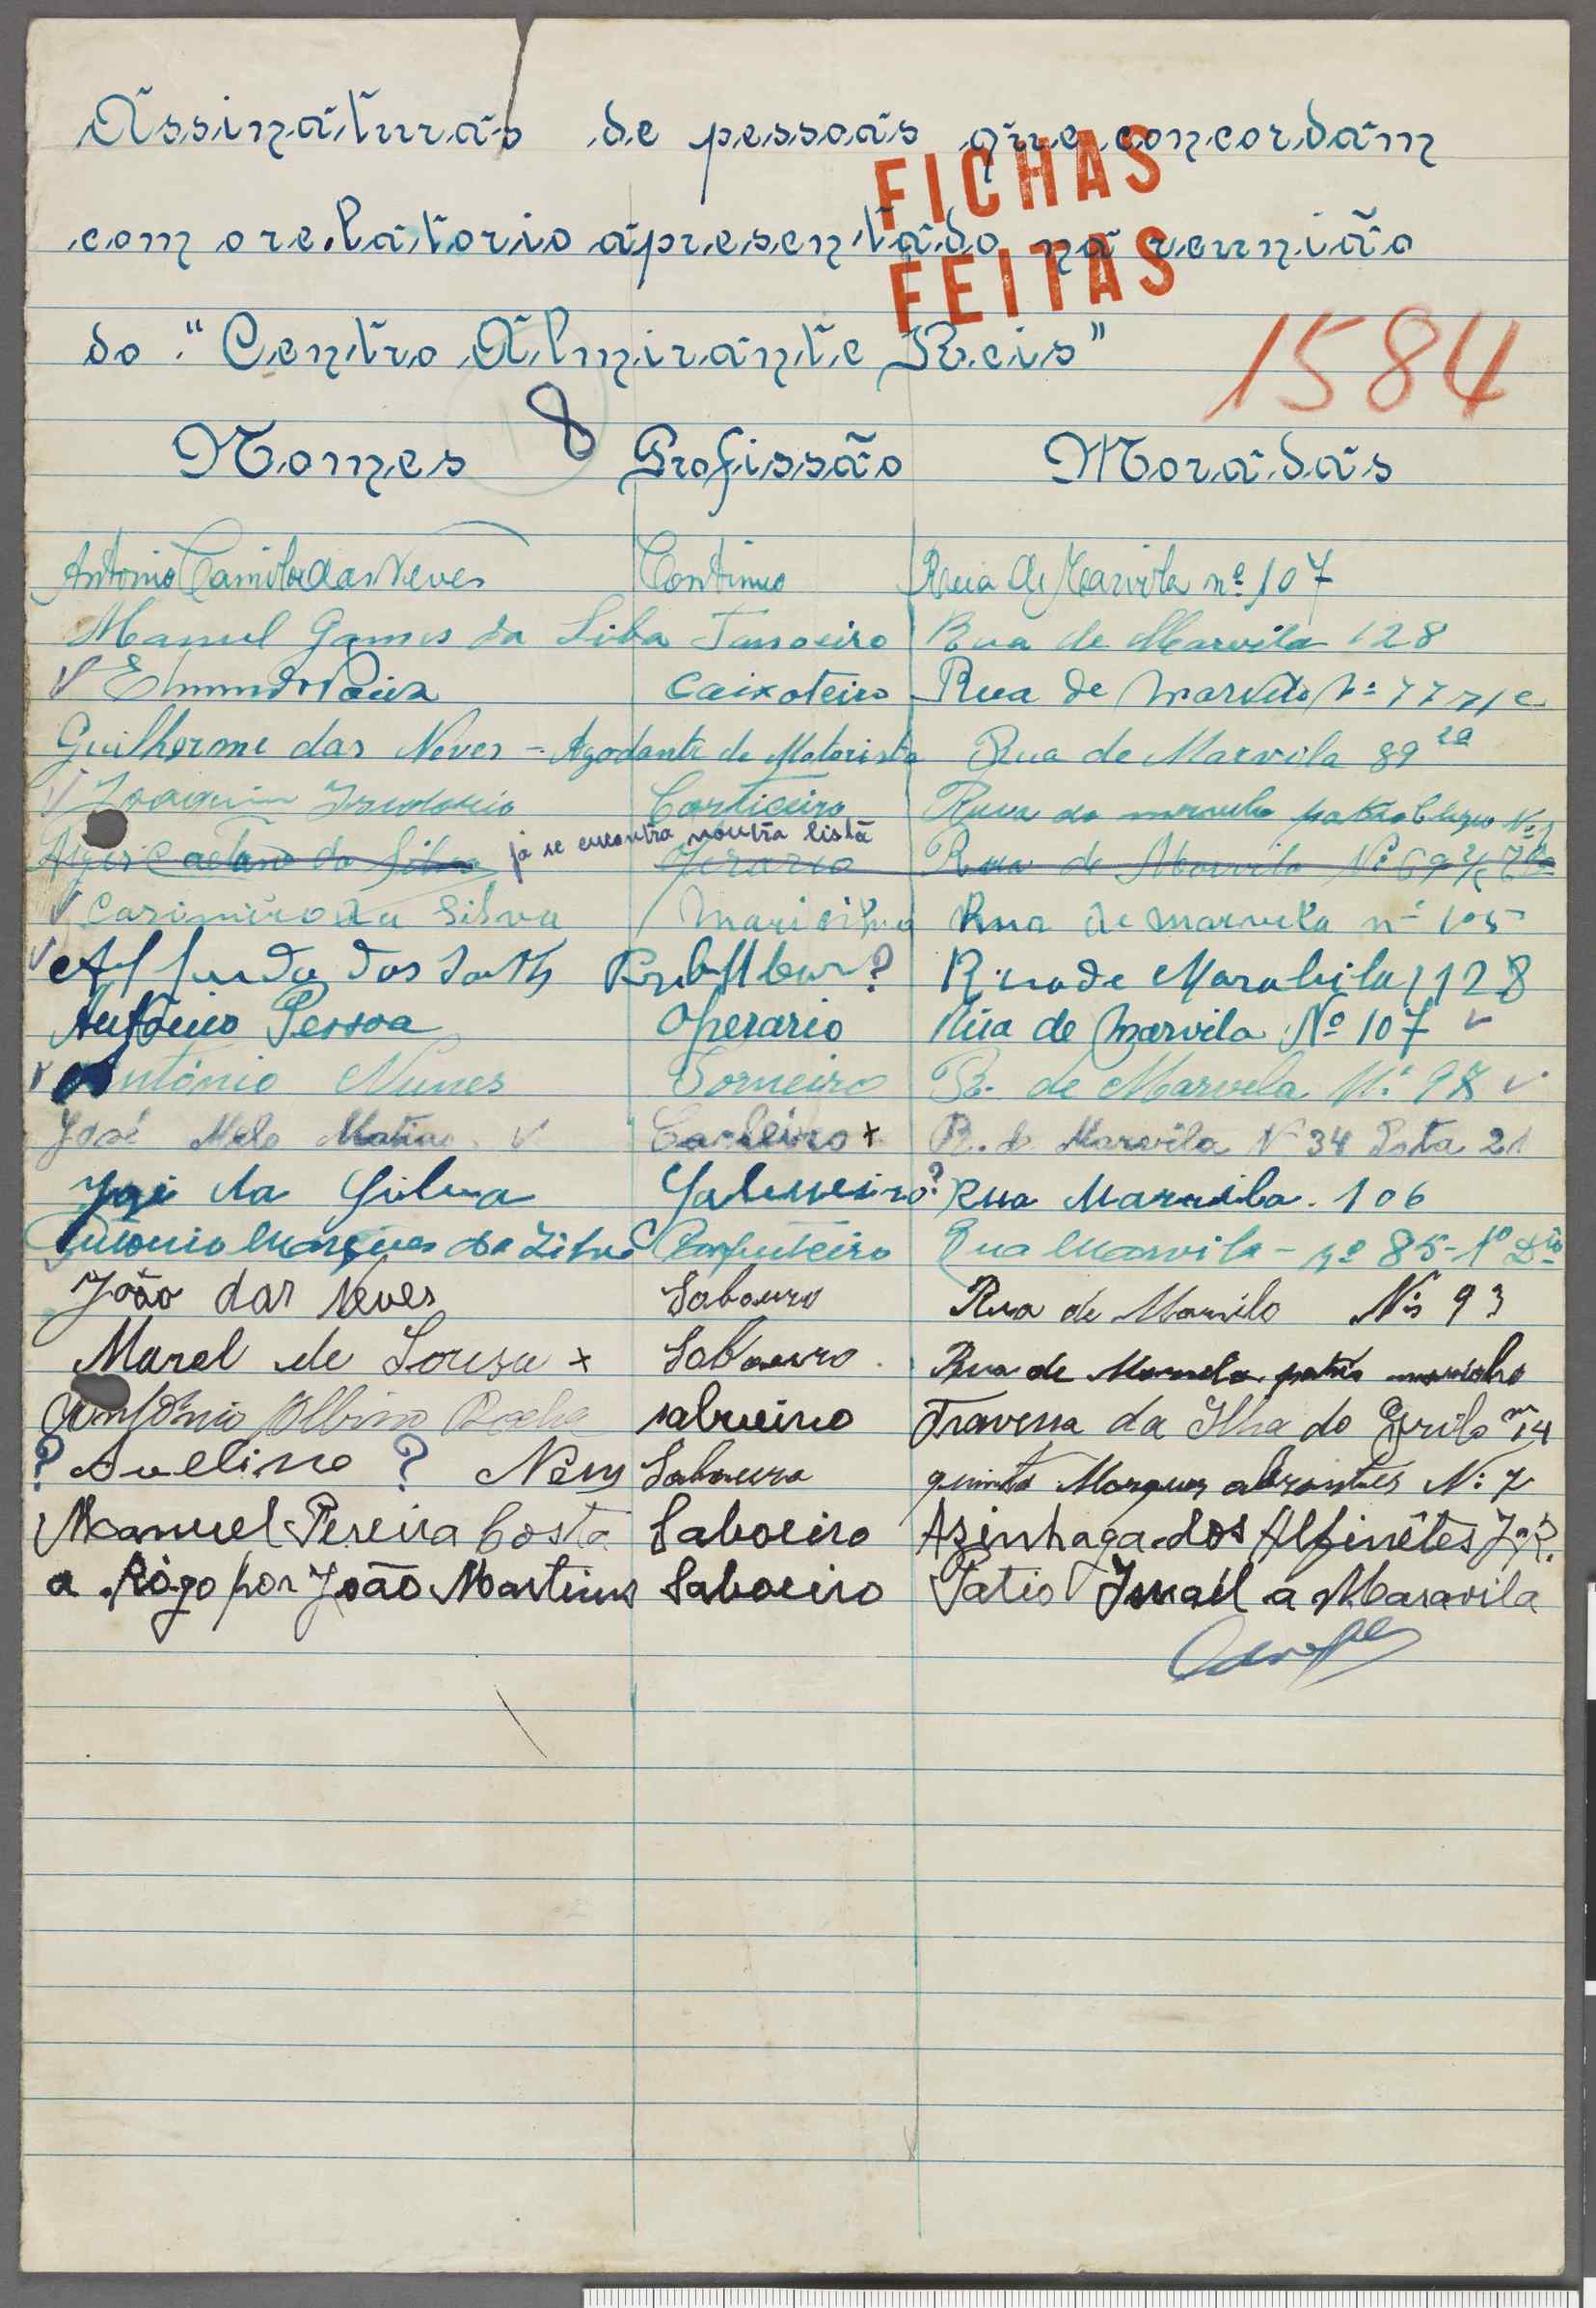 Assinaturas de pessoas que concordam
FICHAS
com o relatorio apresentado na reunião
FEITAS
do "Centro Almirante Reis"
1584
8
Nomes Profissão Moradas
Antonio Camilo das Neves Continuo Rua de Marvila nº 107
Manuel Gomes da Silba Tanoeiro Rua de Marvila 128
Edmundo Paiva Caixoteiro Rua de Marvila Nº 77 r/c
Guilherme das Neves - Agodante de Motorista Rua de Marvila 89 2º
Joaquim Corticeiro Rua de
já se encontra noutra lista
Caetano da Silva Operario Rua de Marvila Nº 69
Casimiro da Silva Rua de marvila nº 105
dos ? Rua de Marabila 128
António Pessoa Operario Rua de Marvila Nº 107
António Nunes Torneiro R. de Marvela Nº 98
José Melo R. de Marvila Nº 34 Pta 21
José da Silva ? Rua Marvila. 106
Antonio Marques da Silva Carpinteiro Rua Marvila - nº 85-1º Dto
João das Neves Saboeiro Rua de Marvila Nº 93
Manel de Sousa x Saboeiro Rua de Marvela patio marialva
António Albino Rocha sabueiro Travessa da Ilha do Grilo nº 14
? Avelino ? Saboeiro quinta Marques abrantes Nº 7
Manuel Pereira Costa Saboeiro Azinhaga dos Alfinêtes J.R.
a Rôgo por João Martins Saboeiro Patio Israel a Maravila